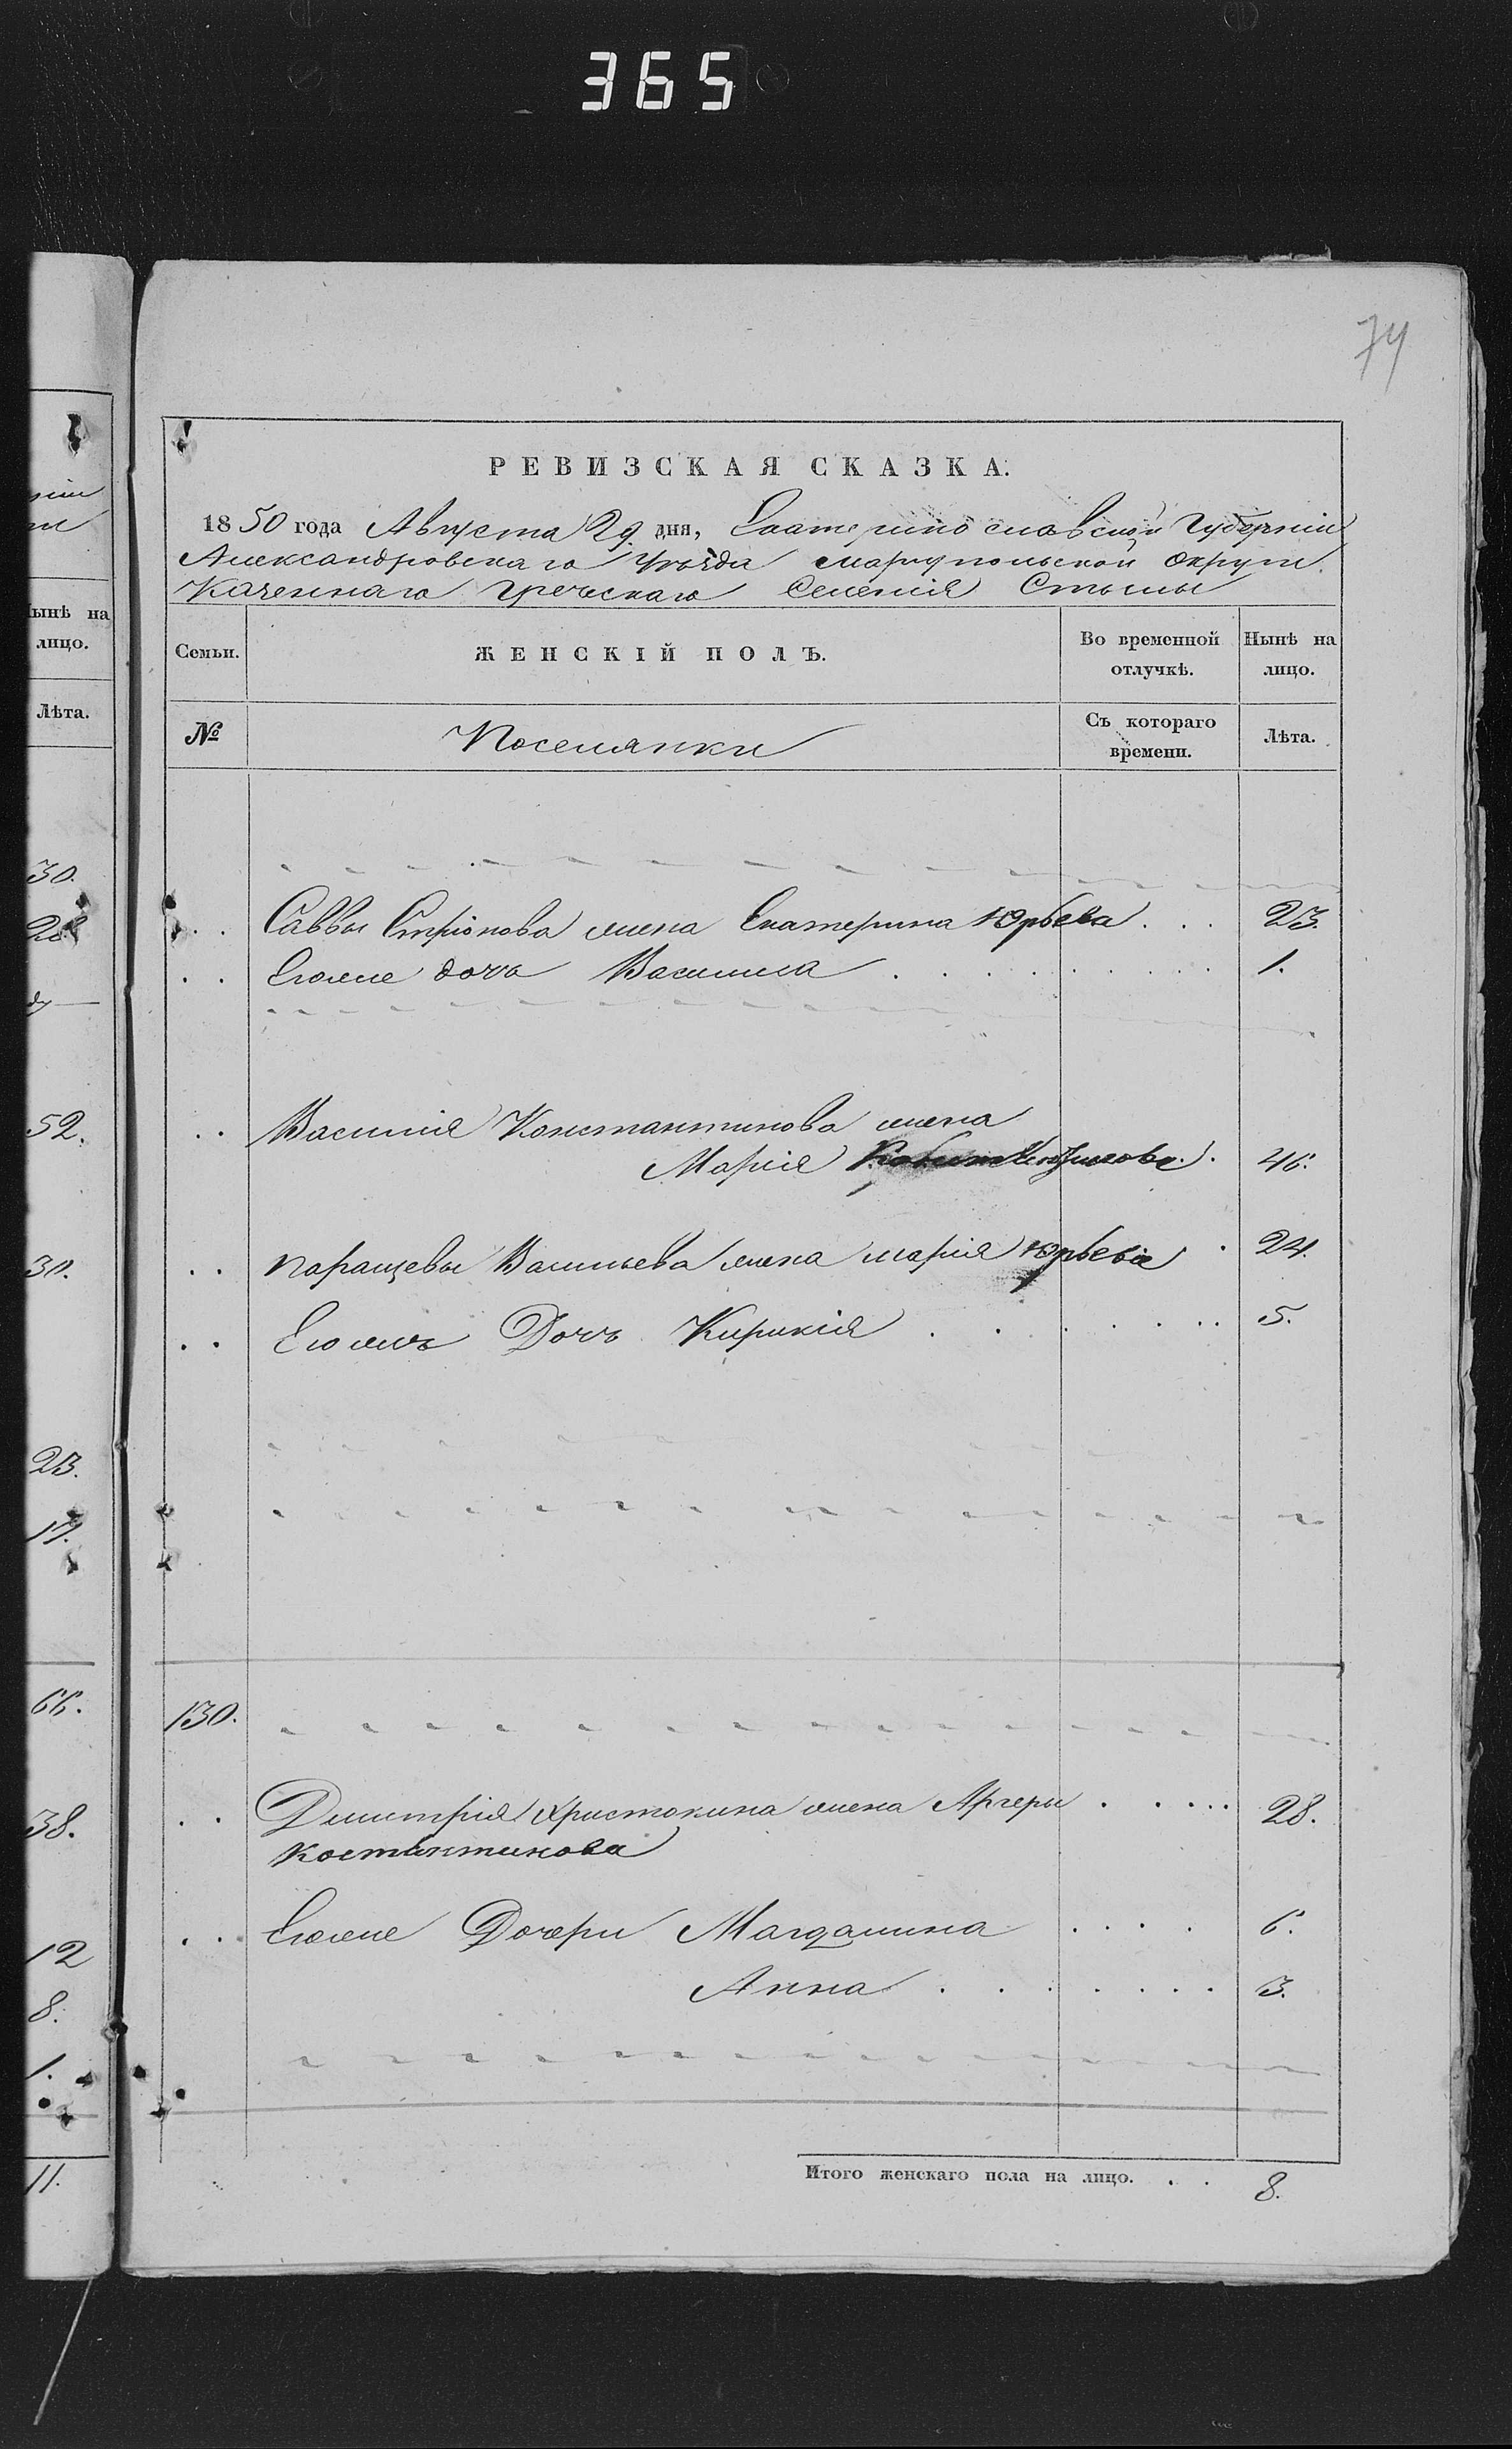 365
74
РЕВИЗСКАЯ СКАЗКА.
1850 года Августа 29 дня, Екатеринославской Губернии
Александровскаго Уѣзда мариупольской округи
Казеннаго Греческаго Селенія Стылы
Семьи.
ЖЕНСКІЙ ПОЛЪ.
Во временной отлучкѣ.
Нынѣ на лицо.
№
Поселянки
Съ котораго времени.
Лѣта.
Саввы Спріонова жена Екатерина Юрьева . . . 23.
Егоже дочь Василиса . . . 1.
Василія Константинова жена
Марія 46.
Паращевы Васильева жена марія Юрьева . . 24.
Егожъ Дочь Кирикія . . . 5.
130.
Дмитрія Христокина жена Аргеры . . . 28.
Костантинова
Егоже Дочери Магдалина . . . . 6.
Анна . . . 3.
Итого женскаго пола на лицо. . . 8.
ынѣ на
лицо.
Лѣта.
30.
28.
52.
30.
23.
17.
66.
38.
12
8.
1.
11.